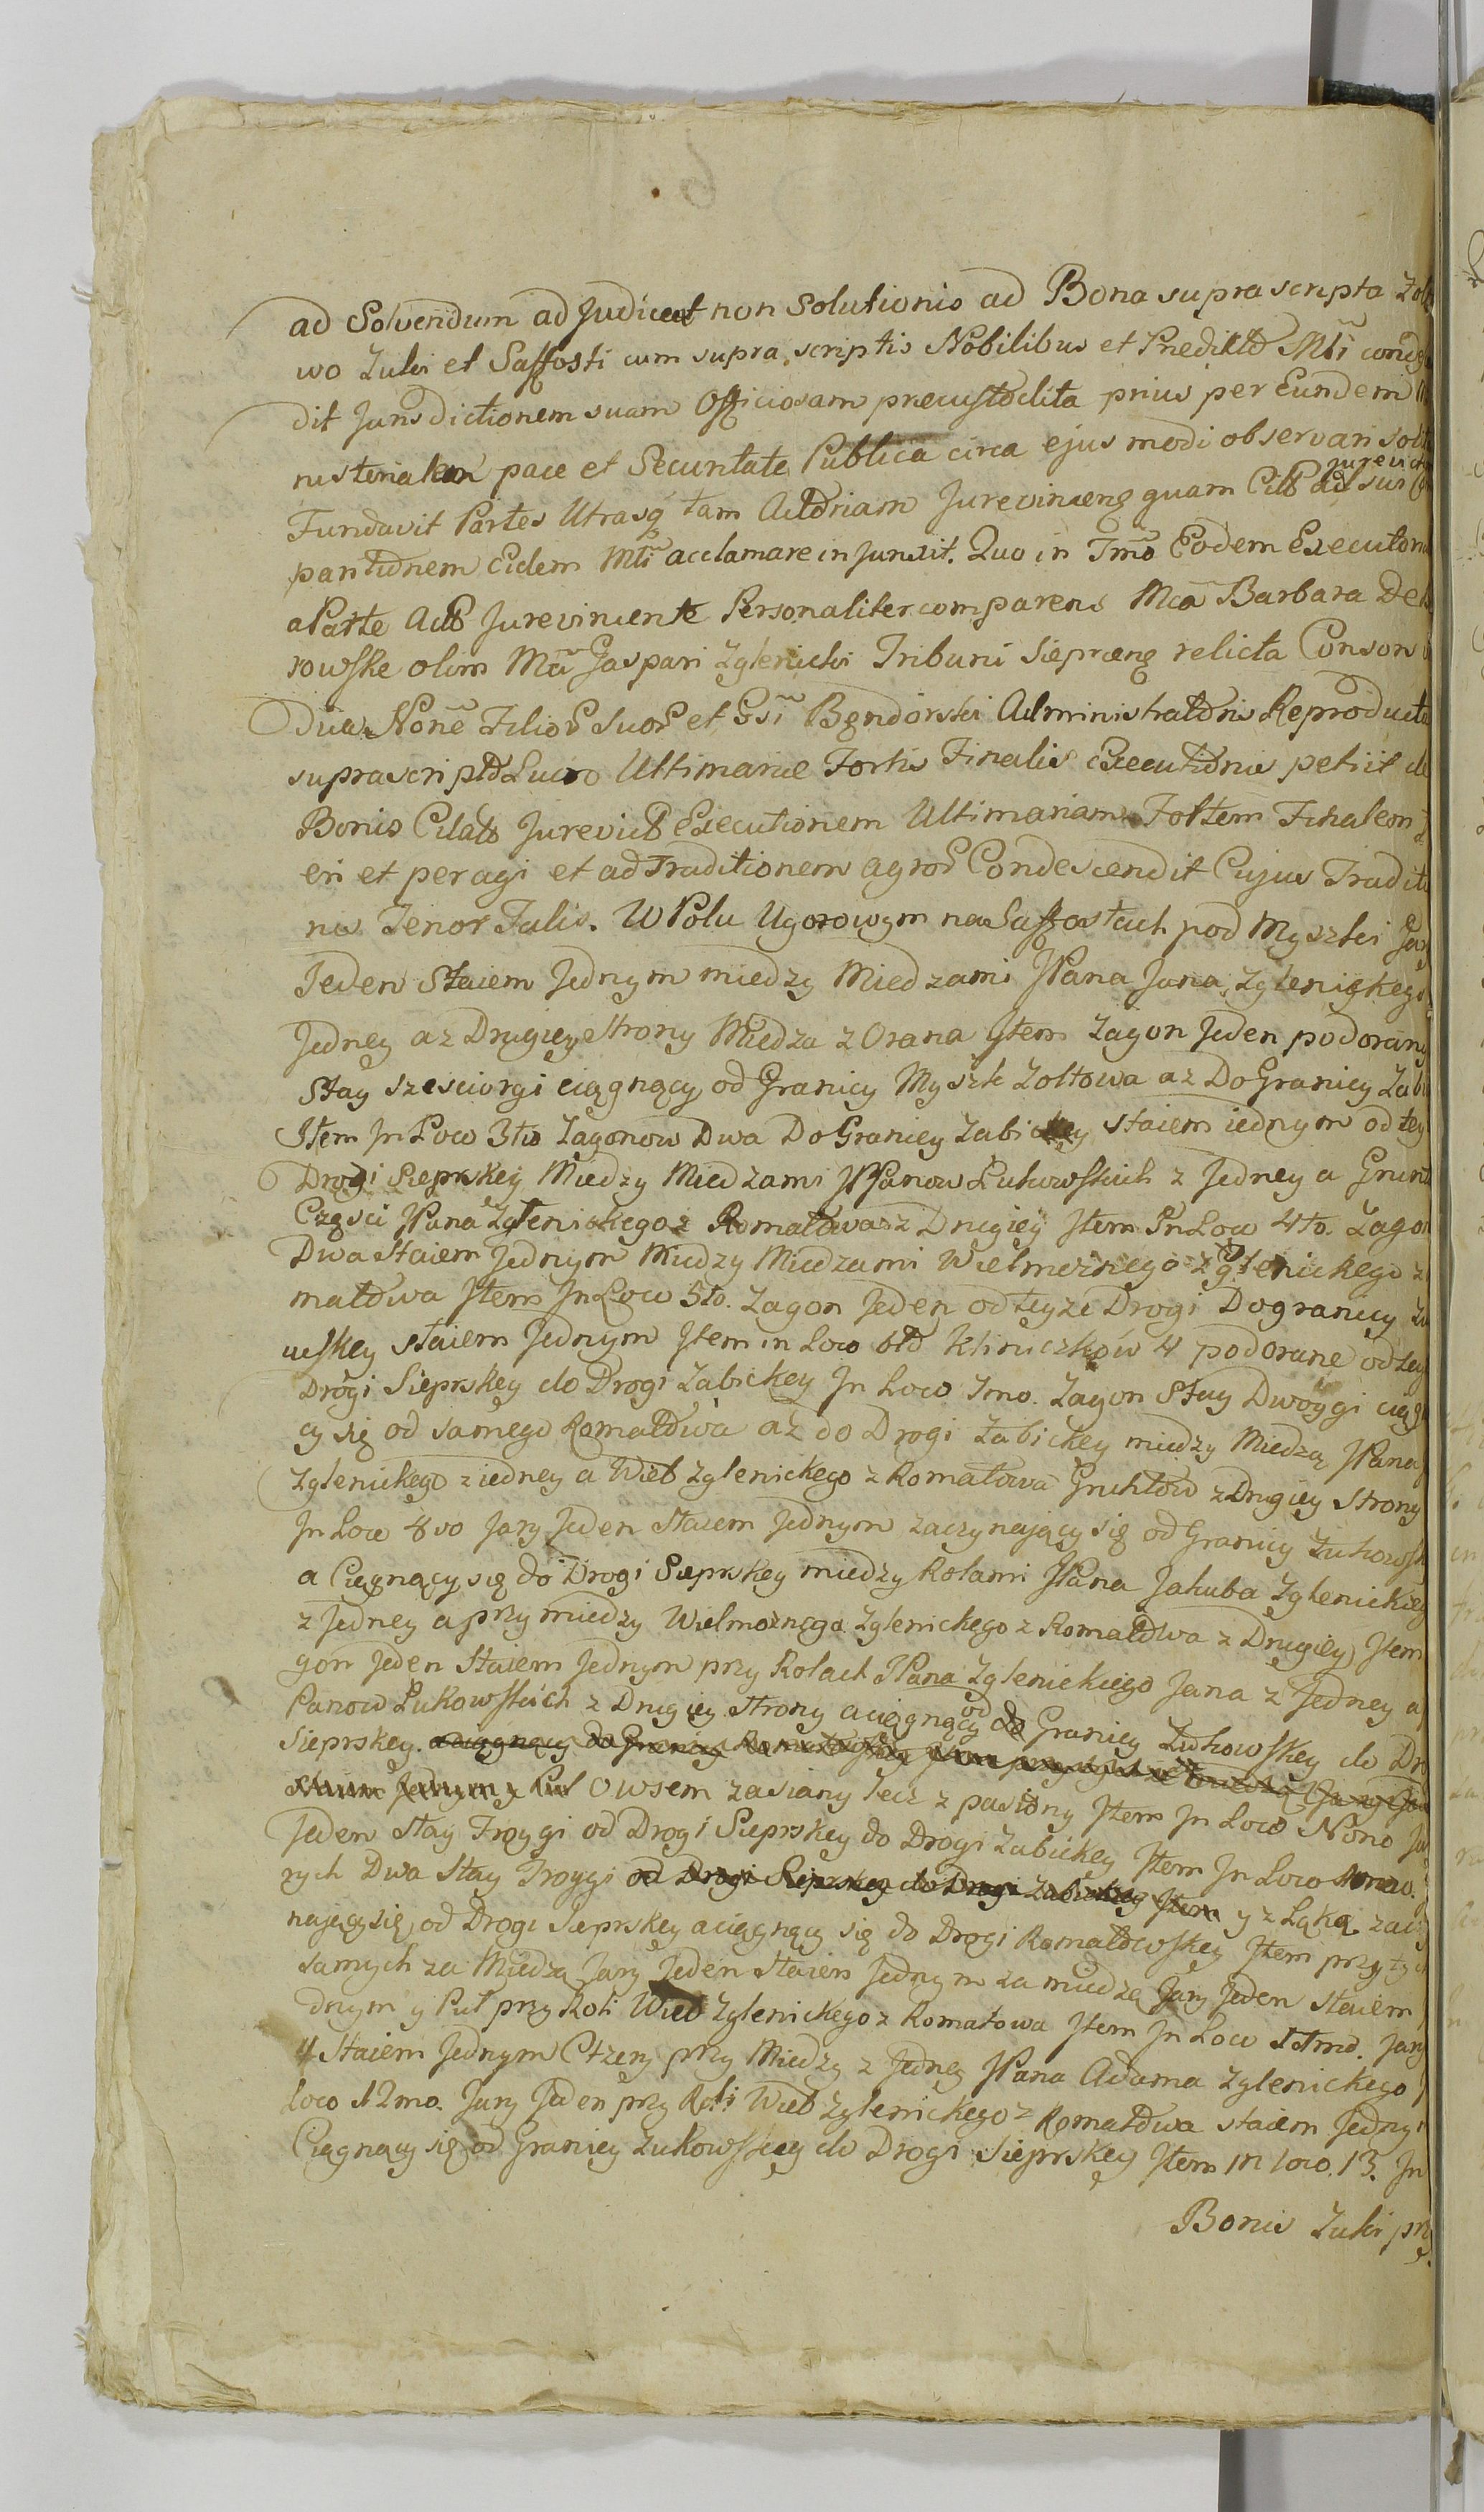 ad Solvendum ad Judicat non Solutionis ad Bona suprascripta Zoł
wo Zuki et Saffosti cum supra scriptis Nobilibus et Predikto Młi conde
dit Jurisdictionem suam Officiosam precustodita prius per Eundem
nisterialem pace et Securitate Publica circa ejus modi observari solit
Fundavit Partes Utrasq tam Actoriam Jurevincenę quam Citt ad sui jurevict
partionem Eidem Młi acclamare injunxit. Quo in Tmo Eodem Executor
a Parte Act Jurevincente Personaliter comparens Mca Barbara De
rowske olim Mci Jaspari Zglenicki Tribuni Sieprceng relicta Consors
Dua None Filior Suor et Gsi Bendorski Administratoris Reproducto
supra scripto Lucro Ultimarie Fortis Finalis Executionis petiit de
Bonis Citats Jurevict Executionem Ultimariam Fortem Finalem
eri et peragi et ad Traditionem agror Condescendit Cujus Tradit
nis Tenor Talis. W Polu Ugorowym na Saffostach pod Myszki Jar
Jeden Staiem Jednym miedzy Miedzami JPana Jana Zglenickego
Jedney a z Drugiey Strony Miedza z Orana Jtem Zagon Jeden podorany
Stay szesciorgi ciągnący od Granicy Myszk Zoltowa az Do Granicy Zabi
Jtem Jn Loco 3tio Zagonow Dwa Do Granicy Zabickey staiem iednym od tey
Drogi Sieprskey Miedzy Miedzami JPPanow Łukowskich z Jedney a Grunt
Częsci JPana Zglenickego z Romatowa z Drugiey Jtem Jn Loco 4to. Zagon
Dwa Staiem Jednym Miedzy Miedzami Wielmoznego Zglenickego z
matowa Jtem Jn Loco 5to. Zagon Jeden od teyze Drogi Do granicy Zu
uckey staiem Jednym Jtem in Loco 6to Kliniczków 4 podorane od tey
Drogi Sieprskey do Drogi Zabickey Jn Loco 7mo. Zagon Stay Dwoygi ciąg
cy się od samego Romatowa az do Drogi Zabickey miedzy Miedzą JPana
Zglenickego z iedney a Wiel Zglenickego z Romatowa Gruntów z Drugiey Strony
Jn Loco 8vo Jary Jeden Staiem Jednym zaczynający się od Granicy Zukowsk
a Ciągnący się do Drogi Sieprskey miedzy Rolami JPana Jakuba Zglenickieg
z Jedney a przy miedzy Wielmoznego Zglenickego z Romatowa z Drugiey Jtem
gon Jeden Staiem Jednym przy Rolach JPana Zglenickiego Jana z Jedney a
Panow Łukowskich z Drugiey Strony a ciągnący od do Granicy Zukowskey do Dro
Sieprskey. a ciągnący do Granicy
Staiem Jednym y Puł Owsem zasiany lecz z pasiony Jtem Jn Loco Nono Ja
Jeden Stay Troygi od Drogi Sieprskey do Drogi Zabickey Jtem Jn Loco
rych Dwa Stay Troygi od Drogi Sieprskey do Drogi Zabickiey Jtem y z Łąką zaczy
nający się od Drogi Sieprskey a ciągnący się do Drogi Romatowskey Jtem przy tych
samych za Miedzą Jary Jeden Staiem Jednym za miedzą Jary Jeden staiem
dnym y Puł przy Roli Wiel Zglenickego z Romatowa Jtem Jn Loco 11mo. Jary
4 Staiem Jednym Cztery przy Miedzy z Jedney JPana Adama Zglenickego
loco 12mo. Jary Jeden przy Roli Wiel Zglenickego z Romatowa staiem Jedny
Ciągnący się od Granicy Zukowskiey do Drogi Sieprskey Jtem in loco. 13. Jn
Bonis Zuki prz